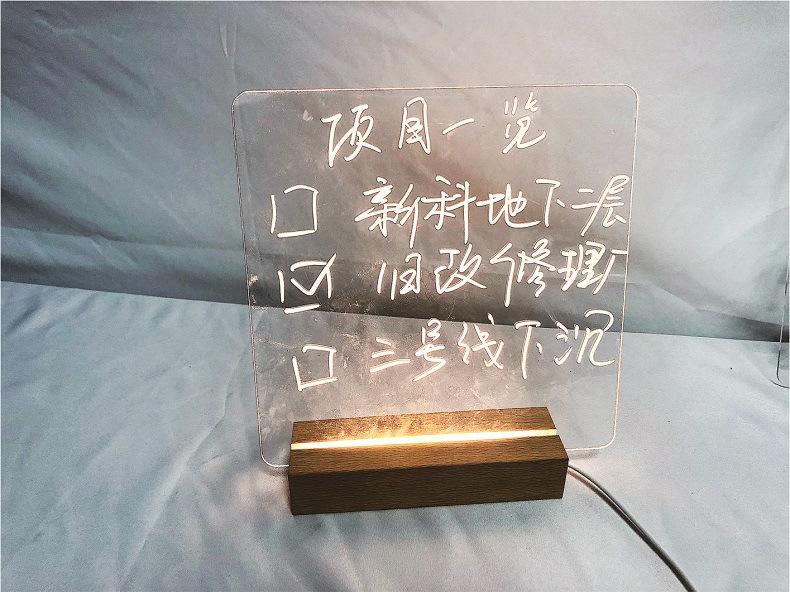 项目一览
☐ 新科地下二层
☑ 旧改修理厂
☐ 三号线下沉